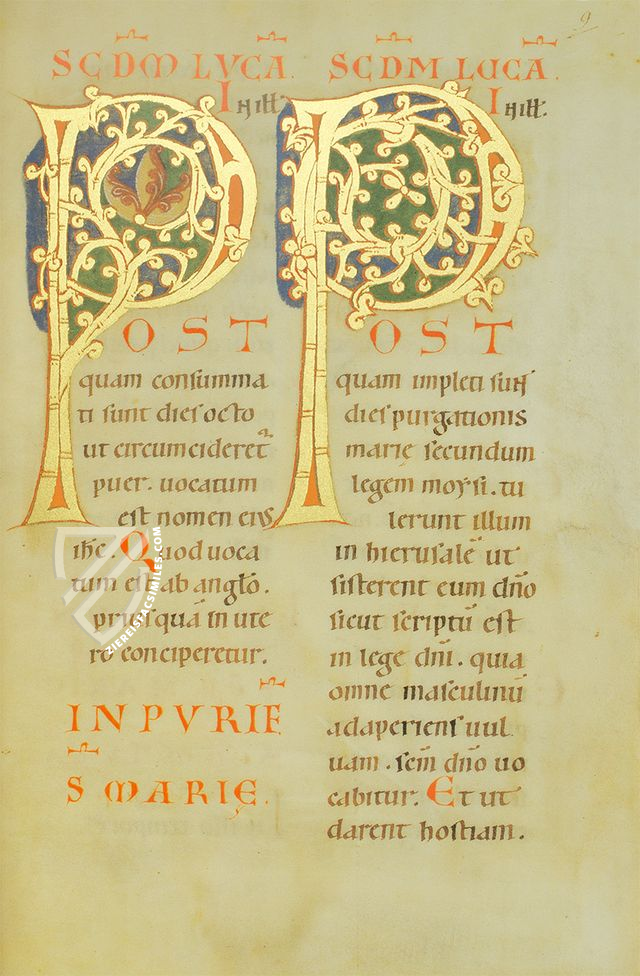 9
SC̄DM LVCĀ.
IN ILL̄.
POST
quam consumma
ti sunt dies octo
ut circumcideret̄
puer. uocatum
est nomen eius
ihc̄. Quod uoca
tum est ab anglo̅.
priusquā in ute
ro conciperetur.
IN PVRIF̄
S̄ MARIĘ.
SC̄DM LUCĀ.
IN ILL̄.
POST
quam impleti sunt
dies purgationis
marię secundum
legem moysi. tu
lerunt illum
in hierusalē ut
sisterent eum dn̄o
sicut scriptū est
in lege dn̄i. quia
omne masculinū
adaperiens uul
uam. sc̄m dn̄o uo
cabitur. Et ut
darent hostiam.
ZIEREISFACSIMILES.COM